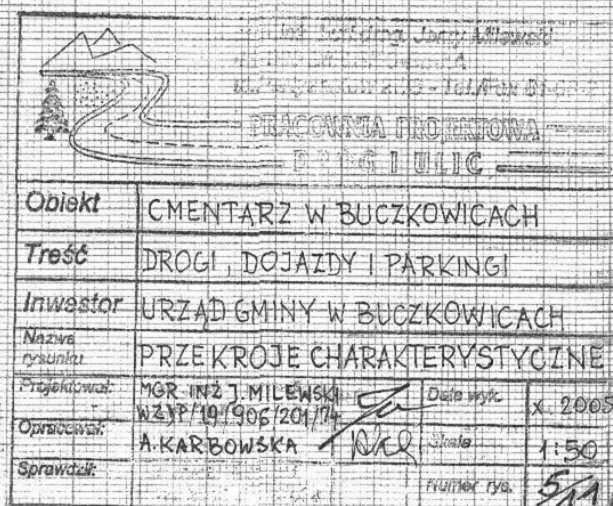 Jerzy Milewski
PRACOWNIA PROJEKTOWA
DRÓG I ULIC
Obiekt CMENTARZ W BUCZKOWICACH
Treść DROGI, DOJAZDY I PARKINGI
Inwestor URZĄD GMINY W BUCZKOWICACH
Nazwa rysunku PRZEKROJE CHARAKTERYSTYCZNE
Projektował: MGR INŻ J. MILEWSKI Data wyk. X 2005
WZDP/19/906/201/74
Opracował: A. KARBOWSKA Skala 1:50
Sprawdził: Numer rys. 5/11